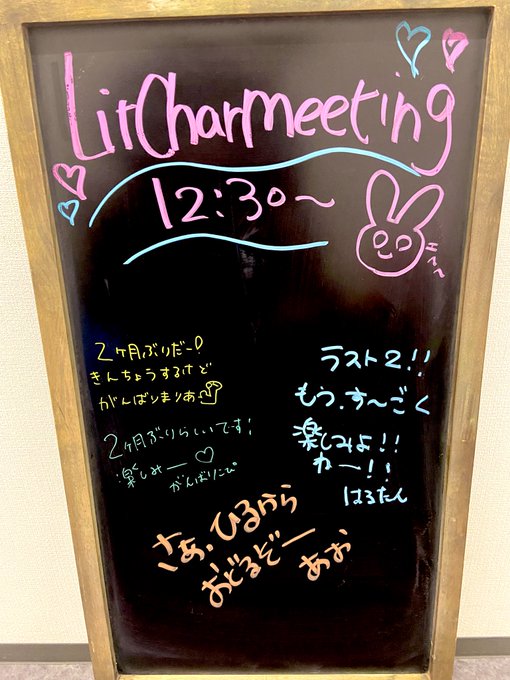 LitCharmeeting
12:30〜
エへへ
2ヶ月ぶりだー!
きんちょうするけど
がんばりまりあ
2ヶ月ぶりらしいです!
楽しみー♡
がんばりこぴ
ラスト2!!
もう、す〜ごく
楽しみよ!!
わー!!
はるたん
さあ、ひるから
おどるぞー
あお